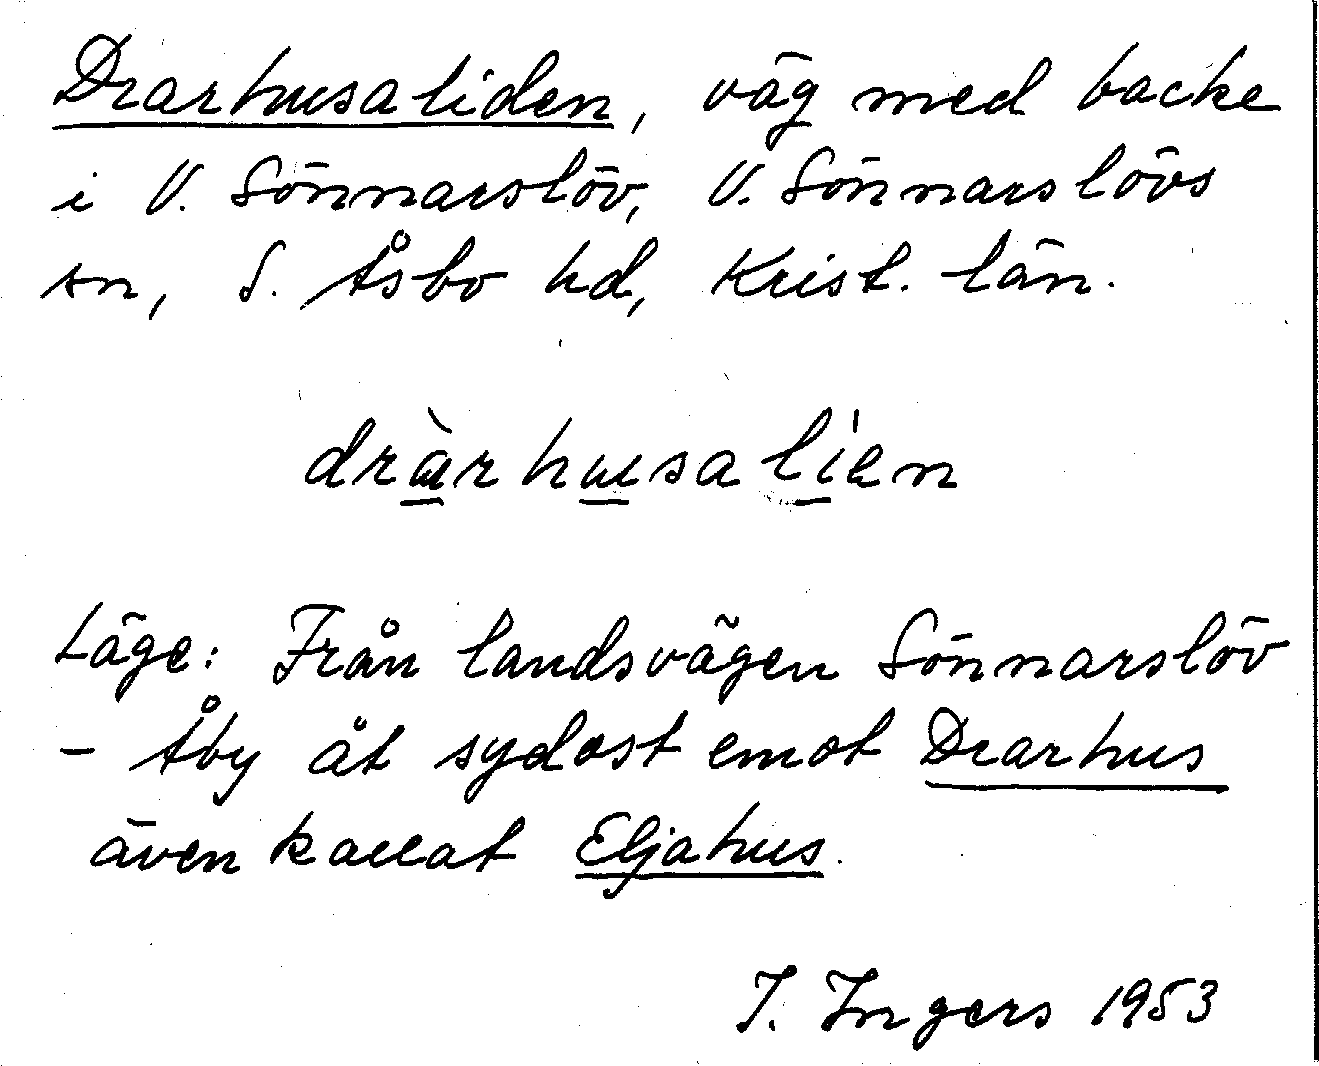 Drarhusaliden, väg med backe
i V. Sönnarslöv, V. Sönnarslövs
sn, S. Åsbo hd, Krist. län.
dràrhusalien
Läge: Från landsvägen Sönnarslöv
- Åby åt sydost emot Drarhus
även kallat Eljahus.
I. Ingers 1953